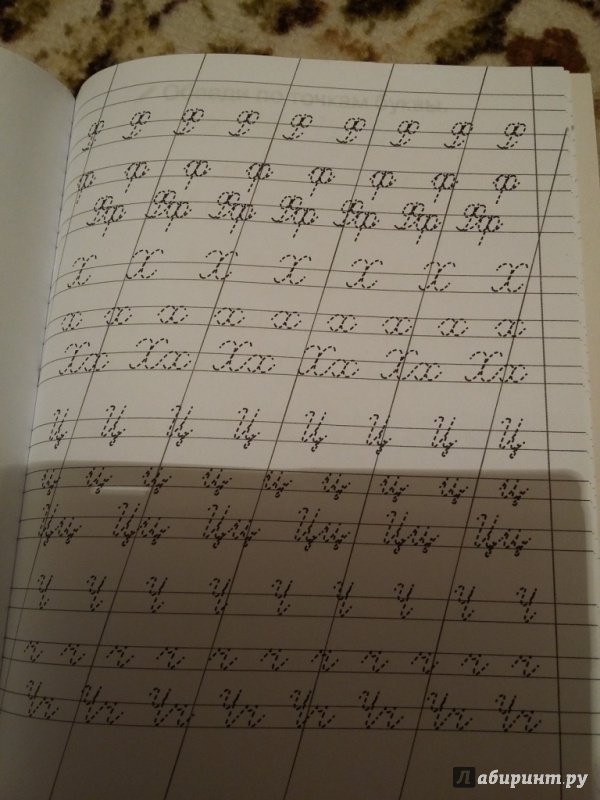 Обведи по точкам буквы
Ф Ф Ф Ф Ф Ф Ф Ф Ф
ф ф ф ф ф ф ф ф
Фф Фф Фф Фф Фф Фф Фф
Х Х Х Х Х Х Х
х х х х х х х х х
Хх Хх Хх Хх Хх Хх
Ц Ц Ц Ц Ц Ц Ц Ц
ц ц ц ц ц ц ц ц ц
Цц Цц Цц Цц Цц Цц
Ч Ч Ч Ч Ч Ч Ч Ч Ч
ч ч ч ч ч ч ч ч ч ч ч
Чч Чч Чч Чч Чч Чч Чч Чч
Лабиринт.ру